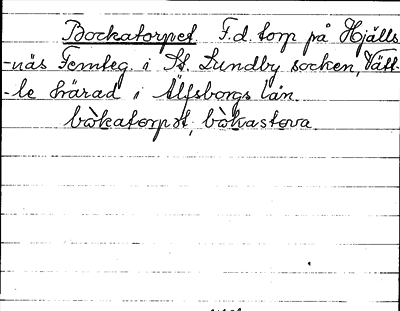 Bockatorpet F.d. torp på Hjälls-
-näs Femteg. i St. Lundby socken, Vätt-
-le härad i Älfsborgs län.
bòkatorpət, bòkastova.